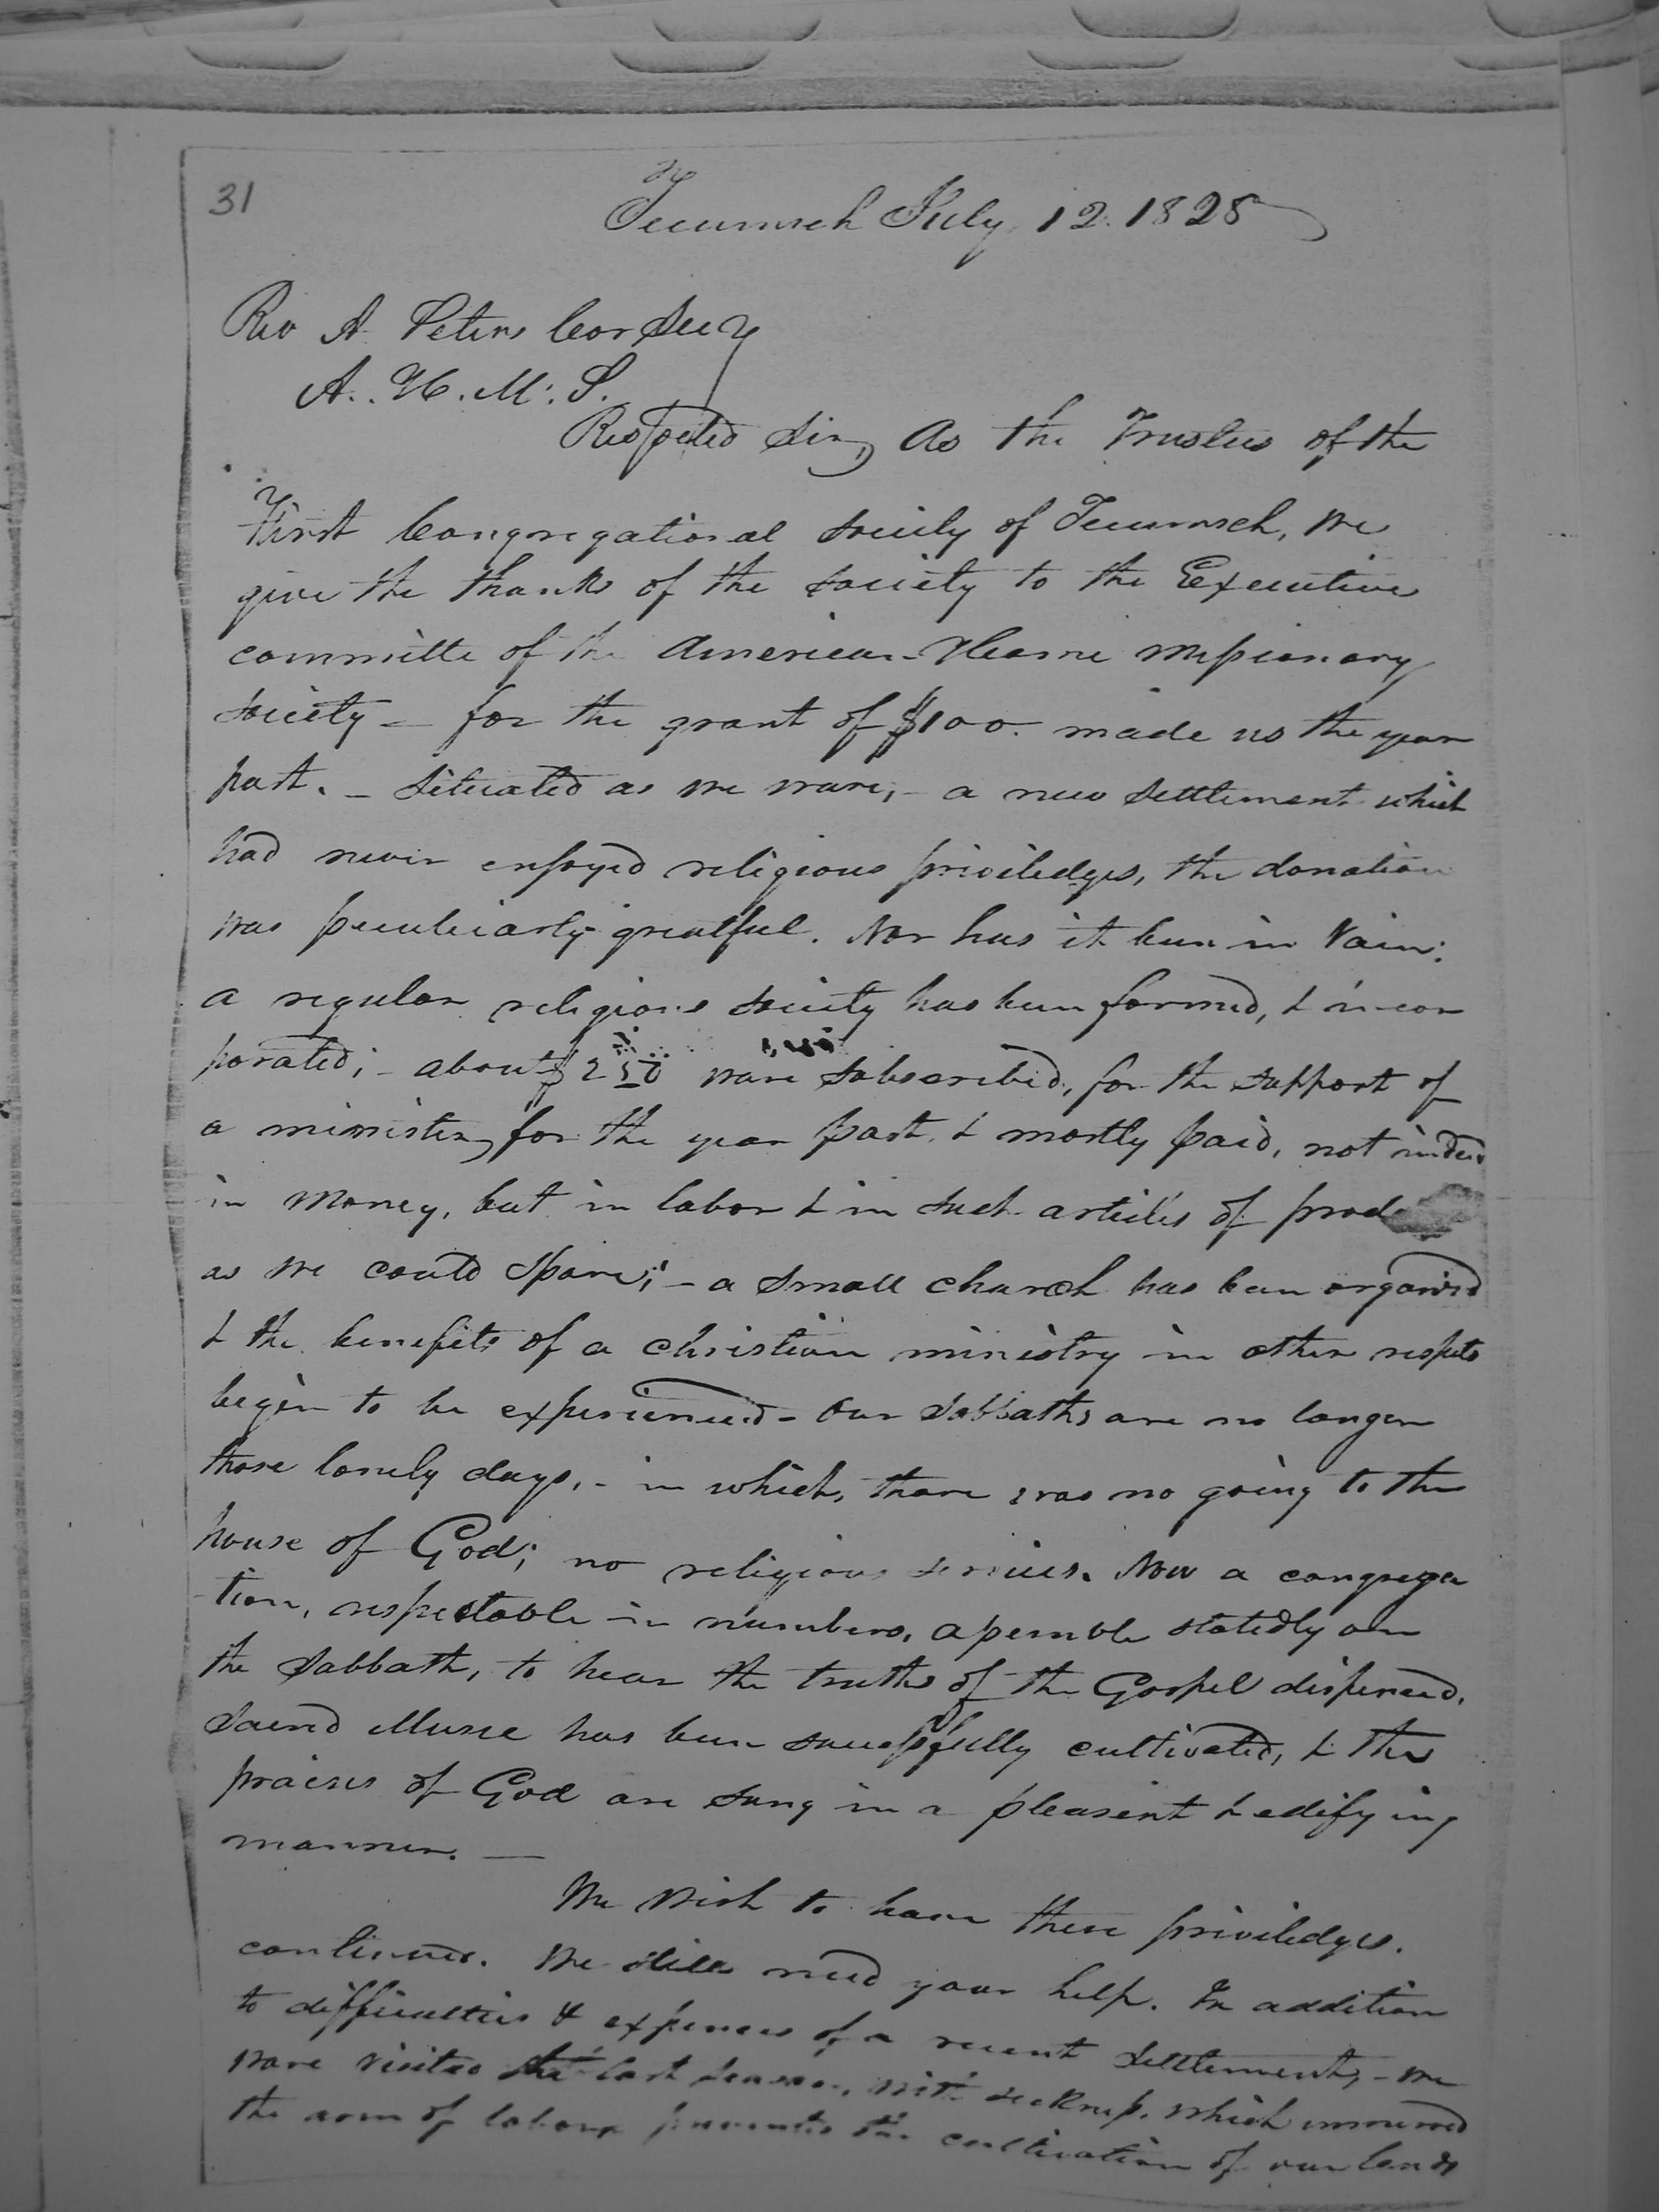 31
Tecumseh July, 12. 1828
Rev A. Peters Cor Secy
A. H. M. S.
Respected Sir, As the Trustees of the
First Congregational Society of Tecumseh, We
give the thanks of the Society to the Executive
committe of the American Home Missionary
Society – for the grant of $100. made us the year
past. – Situated as we ware, – a new Settlement which
had never enjoyed religious priviledges, the donation
was peculiarly greatful. Nor has it been in Vain:
a regular religious Society has been formed, & incor
porated; – about $250 ware Subscribed, for the Support of
a minister, for the year past, & mostly paid, not indeed
in Money, but in labor & in such articles of
as we could Spare; – a Small church has been organised
& the benefits of a christian ministry in other respects
begin to be experienced – Our Sabbaths are no longer
those lonely days, – in which, thare was no going to the
house of God; no religious services. Now a congrega
tion, respectable in numbers, assemble statedly on
the Sabbath, to hear the truths of the Gospel dispensed.
Sacred Music has been successfully cultivated, & the
praises of God are Sung in a pleasent & edifying
manner. —
We Wish to have these priviledges.
continued. We Still need your help. In addition
to difficulties & expenses of a recent Settlement, – we
ware visited the last Season, with sickness, which unnerved
the arm of labour prevented the cultivation of our lands